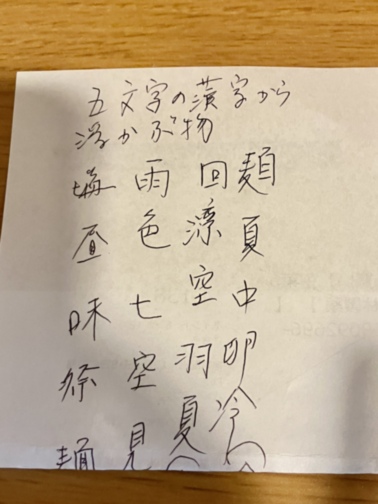 五文字の漢字から
浮かぶ物
麺夏中卵冷
回涼空羽夏
雨色七空見
塩昼味祭麺